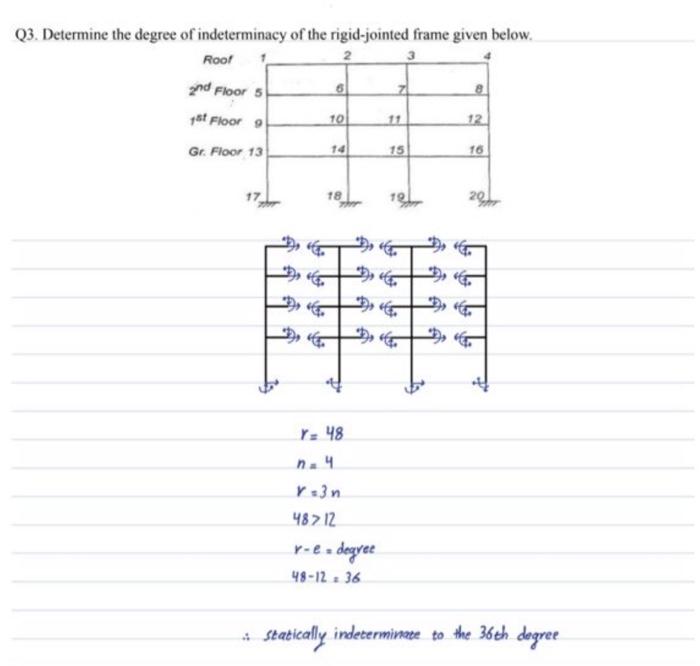 Q3. Determine the degree of indeterminacy of the rigid-jointed frame given below.
Roof 1 2 3 4
2nd Floor 5 6 7 8
1st Floor 9 10 11 12
Gr. Floor 13 14 15 16
17 18 19 20
r = 48
n = 4
r = 3n
48 > 12
r - e = degree
48 - 12 = 36
∴ statically indeterminate to the 36th degree